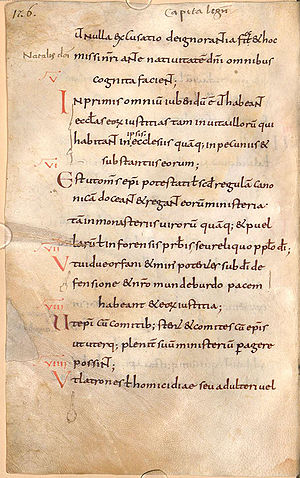 176. Capita legum
ut nulla excusatio de ignorantia fiat & hoc
Natalis dñi
missi nr̃i ante nativitatē dñi omnibus
cognita facient;
V
Inprimis omniū iubendū ē ut habeant
eccłas eorū iustitias tam in vita illorū qui
habitant in ipsis ecclesiis quāq; in pecuniis &
substantiis eorum;
VI
Et ut om̃s ep̃i potestative scđ regulā cano
nicā doceant & regant eorū ministeria
tam in monasteriis virorū quāq; & puel
larū ł in forensis pr̃bis seu reliquo pp̃lo di;
VII
Ut vidue orfani & min potentes sub di de
fensione & nr̄o mundeburdo pacem
habeant & eorū iustitia;
VIII
Ut ep̃i cū comitib; stent & comites cū ep̃is
ut uterq; plenit̃ suū ministeriū pagere
possint;
VIIII
Ut latrones ł homicidiae seu adulteri vel